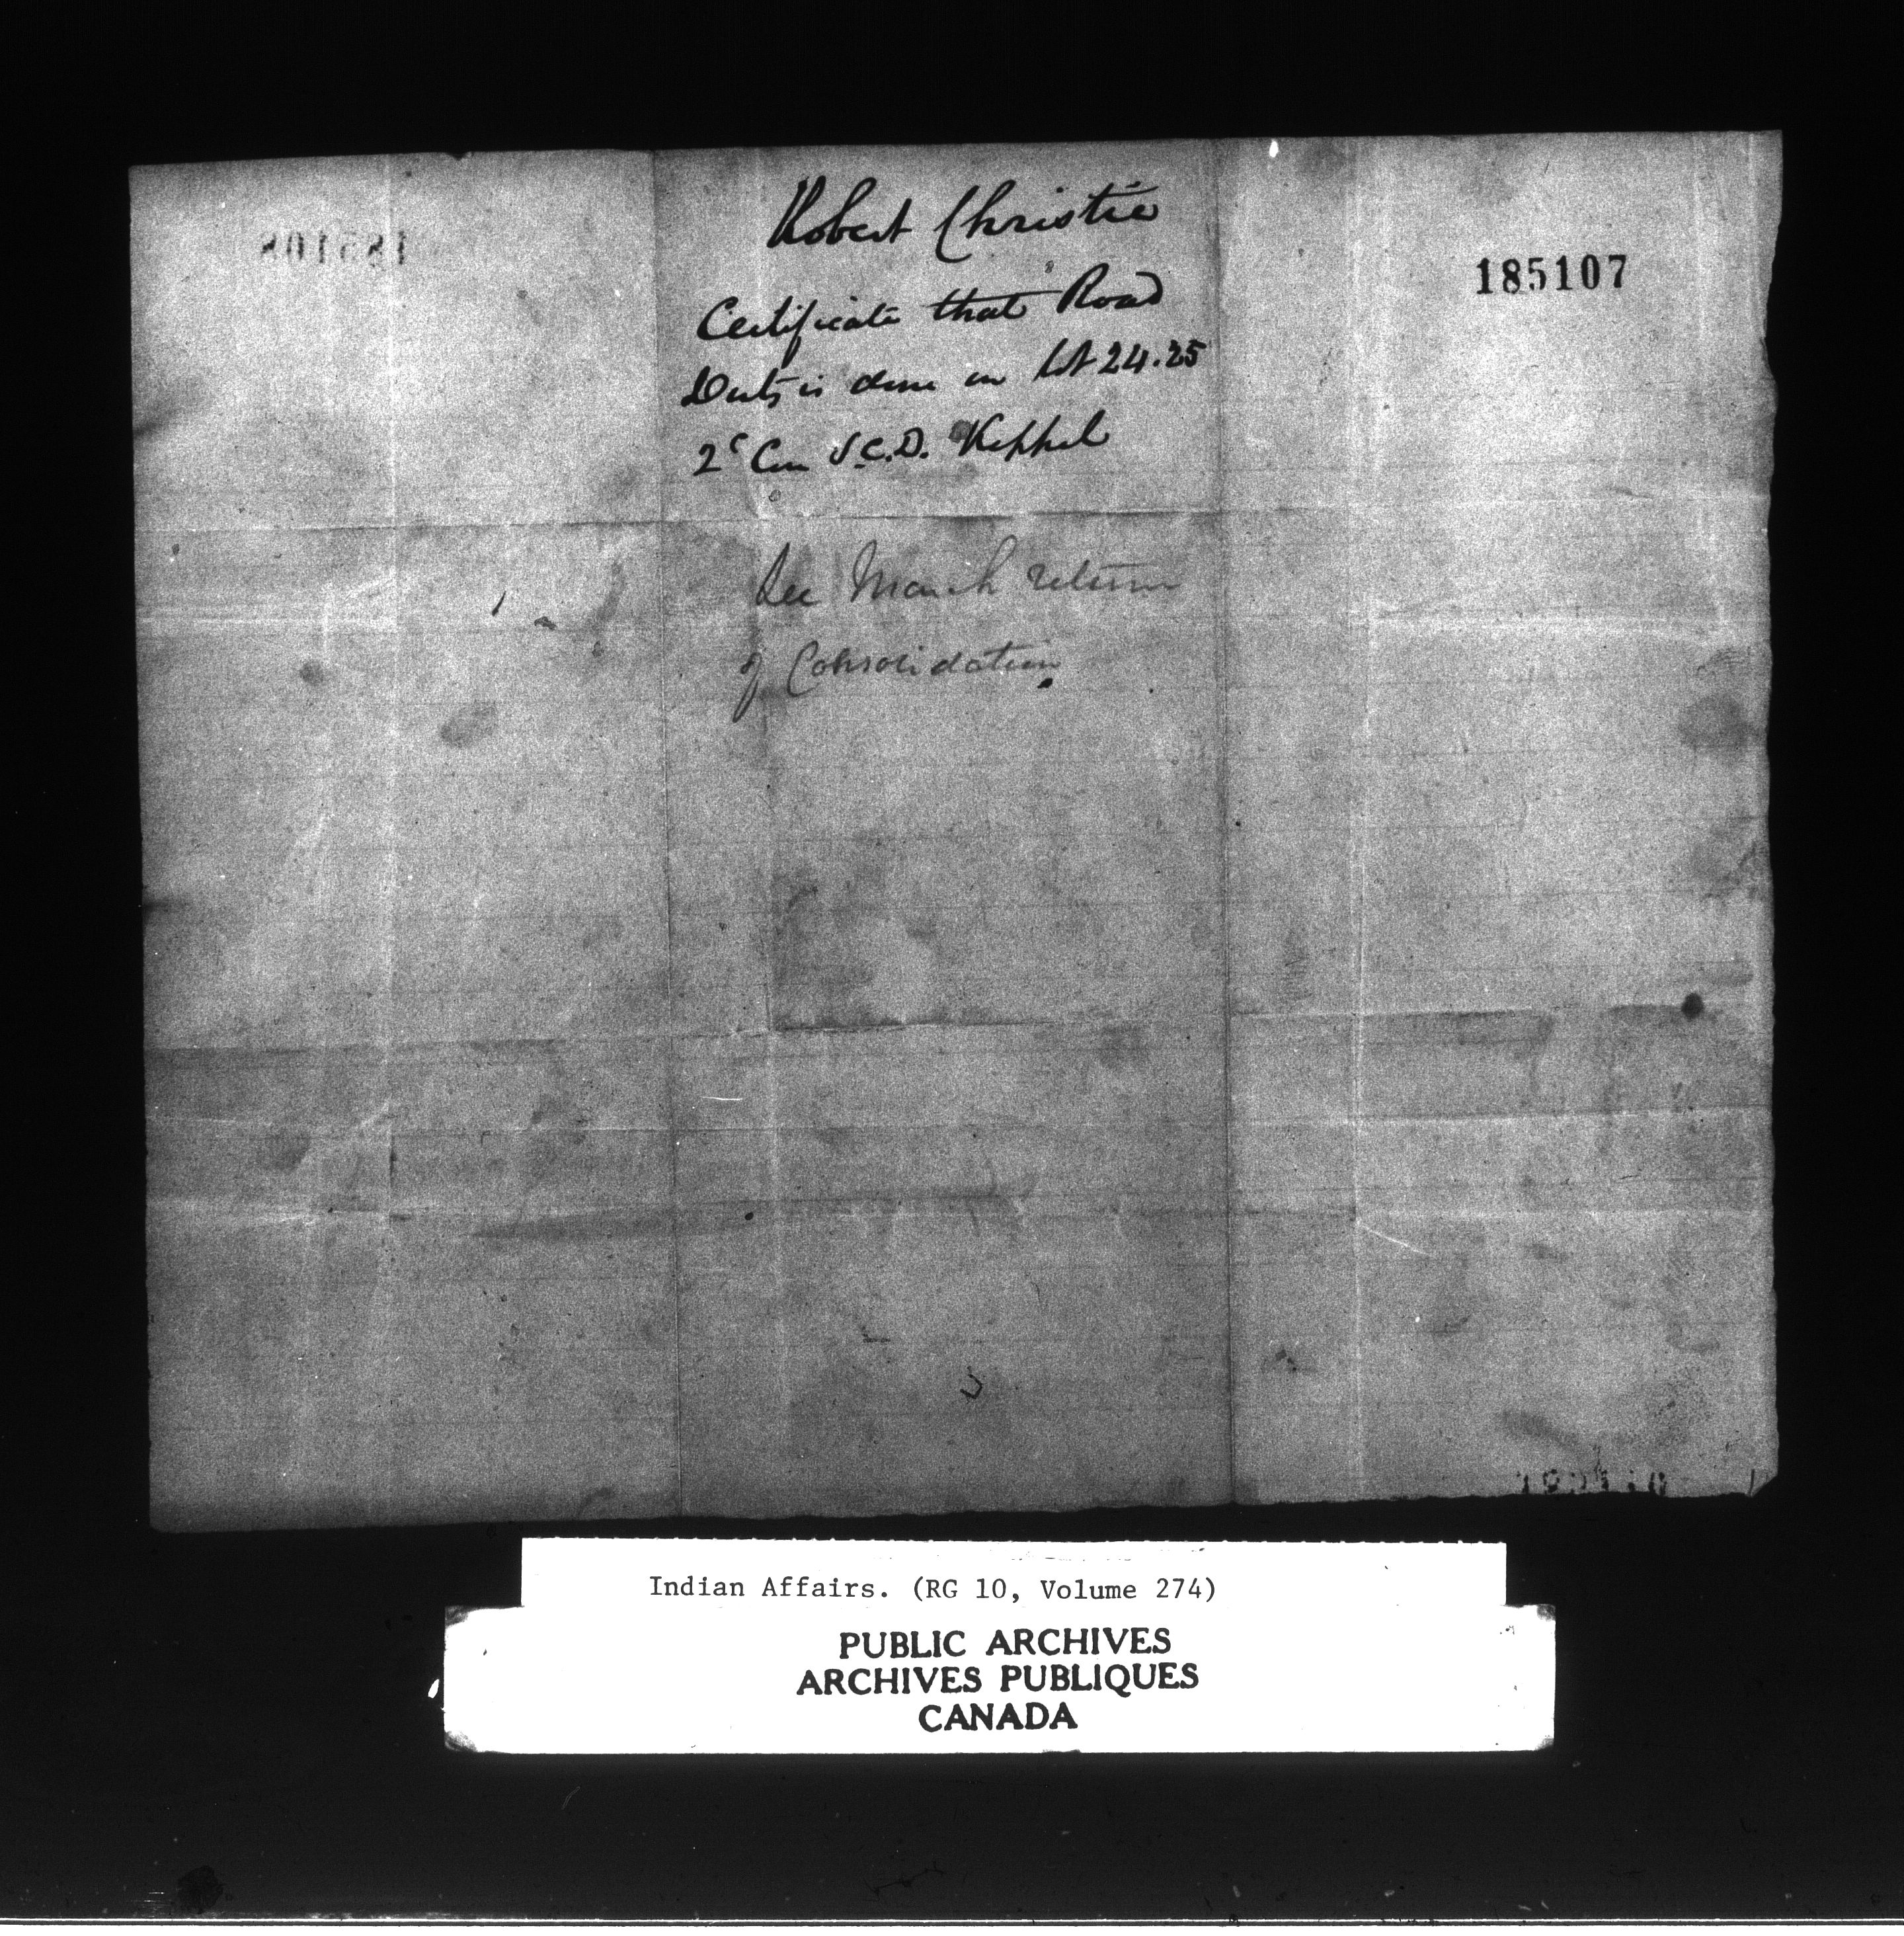 Robert Christie
185107
185108
Certificate that Road
Duty is done on Lot 24.25
2d Con S.C.D. Keppel
See March return
of Consolidation
Indian Affairs. (RG 10, Volume 274)
PUBLIC ARCHIVES
ARCHIVES PUBLIQUES
CANADA